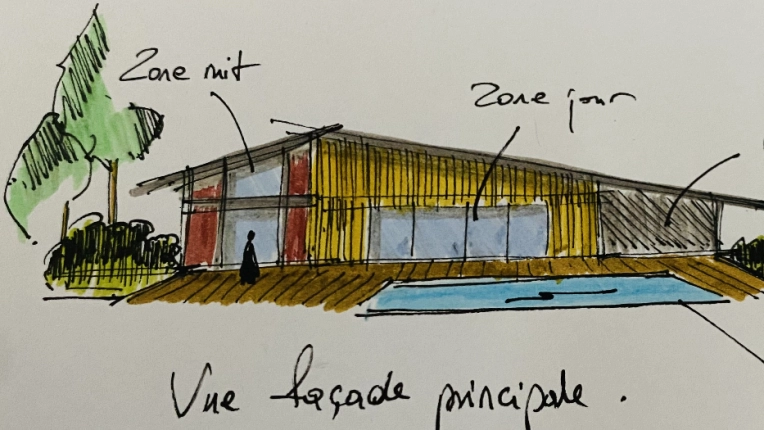 Zone nuit
Zone jour
Vue façade principale.